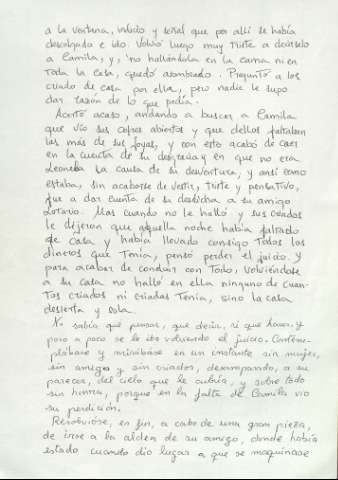 a la ventana, indicio y señal que por allí se había
descolgado e ido. Volvió luego muy triste a decírselo
a Camila, y, no hallándola en la cama ni en
toda la casa, quedó asombrado. Preguntó a los
criados de casa por ella, pero nadie le supo
dar razón de lo que pedía.
Acertó acaso, andando a buscar a Camila
que vio sus cofres abiertos y que dellos faltaban
las más de sus joyas, y con esto acabó de caer
en la cuenta de su desgracia y en que no era
Leonela la causa de su desventura, y ansí como
estaba, sin acabarse de vestir, triste y pensativo,
fue a dar cuenta de su desdicha a su amigo
Lotario. Mas cuando no le halló y sus criados
le dijeron que aquella noche había faltado
de casa y había llevado consigo todos los
dineros que tenía, pensó perder el juicio. Y
para acabar de concluir con todo, volviéndose
a su casa no halló en ella ninguno de cuan-
tos criados ni criadas tenía, sino la casa
desierta y sola.
No sabía qué pensar, qué decir, ni qué hacer, y
poco a poco se le iba volviendo el juicio. Contem-
plábase y mirábase en un instante sin mujer,
sin amigo y sin criados, desamparado, a su
parecer, del cielo que le cubría, y sobre todo
sin honra, porque en la falta de Camila vio
su perdición.
Resolvióse, en fin, a cabo de una gran pieza,
de irse a la aldea de su amigo, donde había
estado cuando dio lugar a que se maquinase